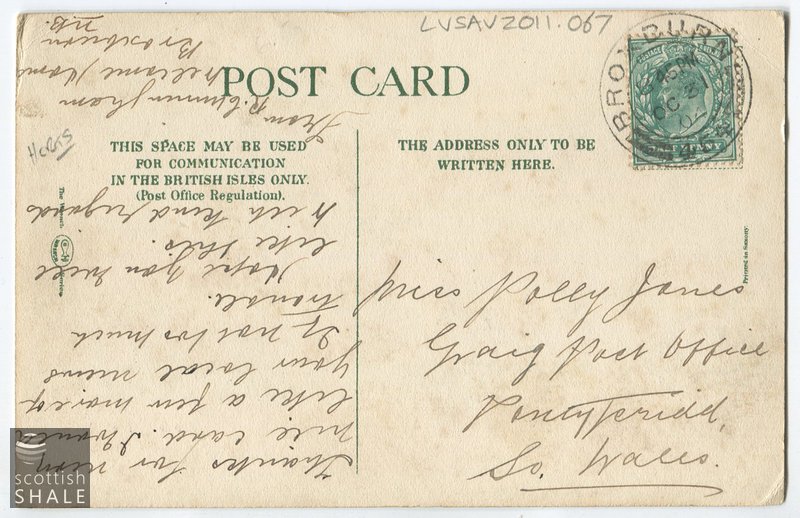 LVSAV2011.067
POST CARD
THIS SPACE MAY BE USED
FOR COMMUNICATION
IN THE BRITISH ISLES ONLY.
(Post Office Regulation).
THE ADDRESS ONLY TO BE
WRITTEN HERE.
BROXBURN
45 PM
OC 31
HERTS
The Wrench Series
Printed in Saxony
Miss Polly Jones
Graig Post Office
Pontypridd,
So. Wales.
Thanks for very
nice card. I would
like a few more of
your local views
If not too much
trouble.
Hope you will
like this.
With kind regards
From P. Cunningham
Welcome
Broxburn
N.B.
scottish
SHALE